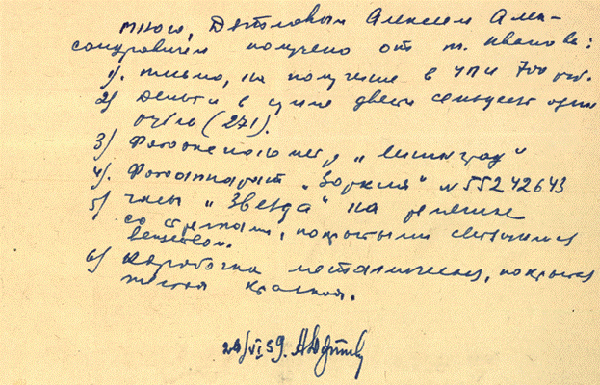 Мною, Дятловым Алексеем Алек-
сандровичем получено от т. Иванова:
1). письмо, на получение в УПИ 700 руб.
2) Деньги в сумме двести семьдесят один
рубль (271).
3) Фотоэкспонометр „Ленинград"
4). Фотоаппарат „Зоркий" N 55242643
5) часы „Звезда" на ремешке
со стрелками, покрытыми светящимся
веществом.
6) Коробочка металическая, покрытая
желтой краской.
/VI 59.